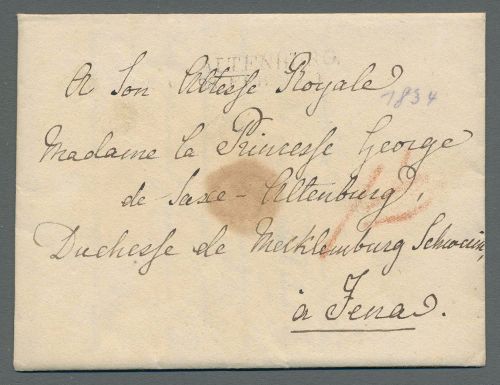 ALTENBURG.
A Son Altesse Royale
1834
Madame la Princesse George
de Saxe-Altenburg,
Duchesse de Mecklemburg Schwerin,
à Jena.